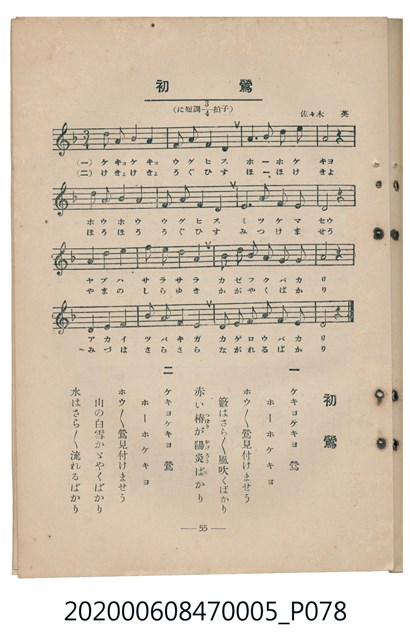 初鶯
(ニ短調 3/4 拍子)
佐々木英
(一) ケキョケキョ ウグヒス ホーホケキヨ
(二) けきょけきょ うぐひす ほーほけきよ
ホウホウ ウグヒス ミツケマセウ
ほうほう うぐひす みつけませう
ヤブハ サラサラ カゼフクバカリ
やまの しらゆき かがやくばかり
アカイ ツバキガ カゲロウバカリ
みづは さらさら ながれるばかり
初鶯
一
ケキョケキョ 鶯
ホーホケキョ
ホウ〱鶯見付けませう
籔はさら〱風吹くばかり
赤い椿が陽炎ばかり
二
ケキョケキョ 鶯
ホーホケキョ
ホウ〱鶯見付けませう
山の白雪かゞやくばかり
水はさら〱流れるばかり
— 55 —
202000608470005_P078